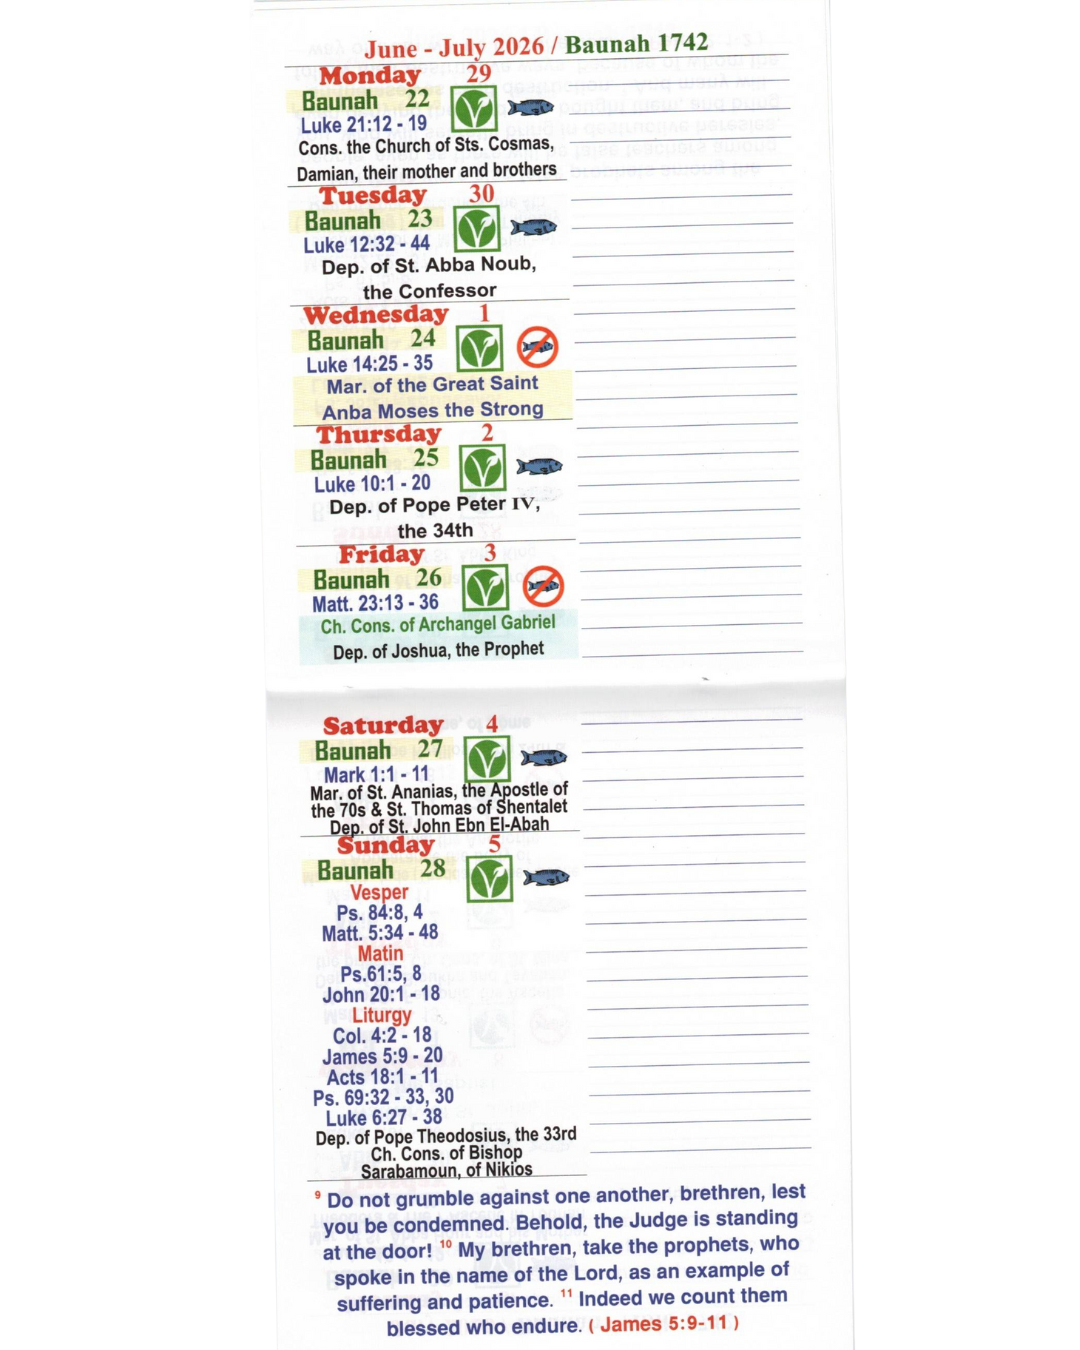 June - July 2026 / Baunah 1742
Monday 29
Baunah 22
Luke 21:12 - 19
Cons. the Church of Sts. Cosmas,
Damian, their mother and brothers
Tuesday 30
Baunah 23
Luke 12:32 - 44
Dep. of St. Abba Noub,
the Confessor
Wednesday 1
Baunah 24
Luke 14:25 - 35
Mar. of the Great Saint
Anba Moses the Strong
Thursday 2
Baunah 25
Luke 10:1 - 20
Dep. of Pope Peter IV,
the 34th
Friday 3
Baunah 26
Matt. 23:13 - 36
Ch. Cons. of Archangel Gabriel
Dep. of Joshua, the Prophet
Saturday 4
Baunah 27
Mark 1:1 - 11
Mar. of St. Ananias, the Apostle of
the 70s & St. Thomas of Shentalet
Dep. of St. John Ebn El-Abah
Sunday 5
Baunah 28
Vesper
Ps. 84:8, 4
Matt. 5:34 - 48
Matin
Ps.61:5, 8
John 20:1 - 18
Liturgy
Col. 4:2 - 18
James 5:9 - 20
Acts 18:1 - 11
Ps. 69:32 - 33, 30
Luke 6:27 - 38
Dep. of Pope Theodosius, the 33rd
Ch. Cons. of Bishop
Sarabamoun, of Nikios
9 Do not grumble against one another, brethren, lest
you be condemned. Behold, the Judge is standing
at the door! 10 My brethren, take the prophets, who
spoke in the name of the Lord, as an example of
suffering and patience. 11 Indeed we count them
blessed who endure. ( James 5:9-11 )